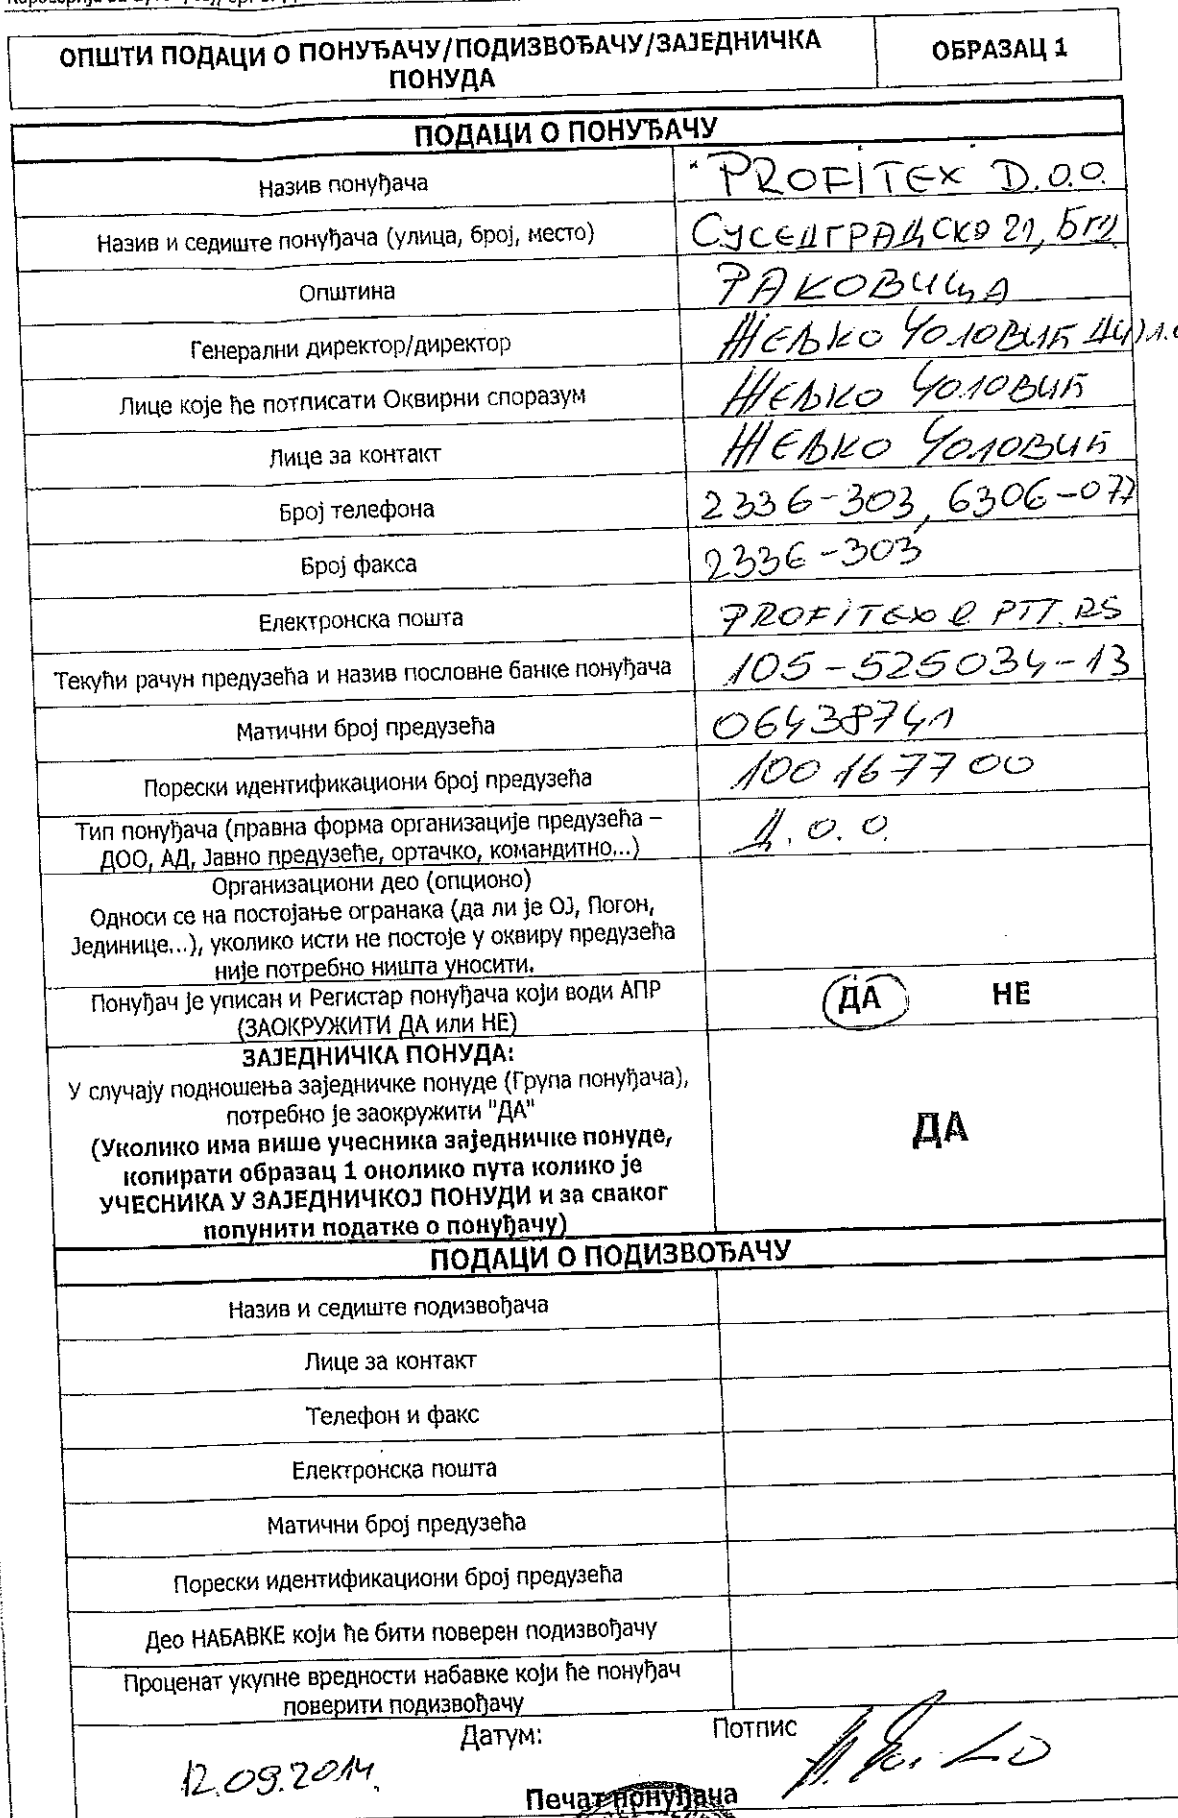 ОПШТИ ПОДАЦИ О ПОНУЂАЧУ/ПОДИЗВОЂАЧУ/ЗАЈЕДНИЧКА
ПОНУДА
ОБРАЗАЦ 1
ПОДАЦИ О ПОНУЂАЧУ
Назив понуђача
"PROFITEX" D.O.O.
Назив и седиште понуђача (улица, број, место)
21,
Општина
РАКОВИЦА
Генерални директор/директор
ЖЕЉКО ЧОЛОВИЋ
Лице које ће потписати Оквирни споразум
ЖЕЉКО ЧОЛОВИЋ
Лице за контакт
ЖЕЉКО ЧОЛОВИЋ
Број телефона
2336-303, 6306-077
Број факса
2336-303
Електронска пошта
PROFITEX@PTT.RS
Текући рачун предузећа и назив пословне банке понуђача
105-525034-13
Матични број предузећа
06438741
Порески идентификациони број предузећа
100167700
Тип понуђача (правна форма организације предузећа –
ДОО, АД, Јавно предузеће, ортачко, командитно...)
Д.О.О.
Организациони део (опционо)
Односи се на постојање огранака (да ли је ОЈ, Погон,
Јединице...), уколико исти не постоје у оквиру предузећа
није потребно ништа уносити.
Понуђач је уписан и Регистар понуђача који води АПР
(ЗАОКРУЖИТИ ДА или НЕ)
ДА НЕ
ЗАЈЕДНИЧКА ПОНУДА:
У случају подношења заједничке понуде (Група понуђача),
потребно је заокружити "ДА"
(Уколико има више учесника заједничке понуде,
копирати образац 1 онолико пута колико је
УЧЕСНИКА У ЗАЈЕДНИЧКОЈ ПОНУДИ и за сваког
попунити податке о понуђачу)
ДА
ПОДАЦИ О ПОДИЗВОЂАЧУ
Назив и седиште подизвођача
Лице за контакт
Телефон и факс
Електронска пошта
Матични број предузећа
Порески идентификациони број предузећа
Део НАБАВКЕ који ће бити поверен подизвођачу
Проценат укупне вредности набавке који ће понуђач
поверити подизвођачу
Датум:
Потпис
12.09.2014.
Печат понуђача